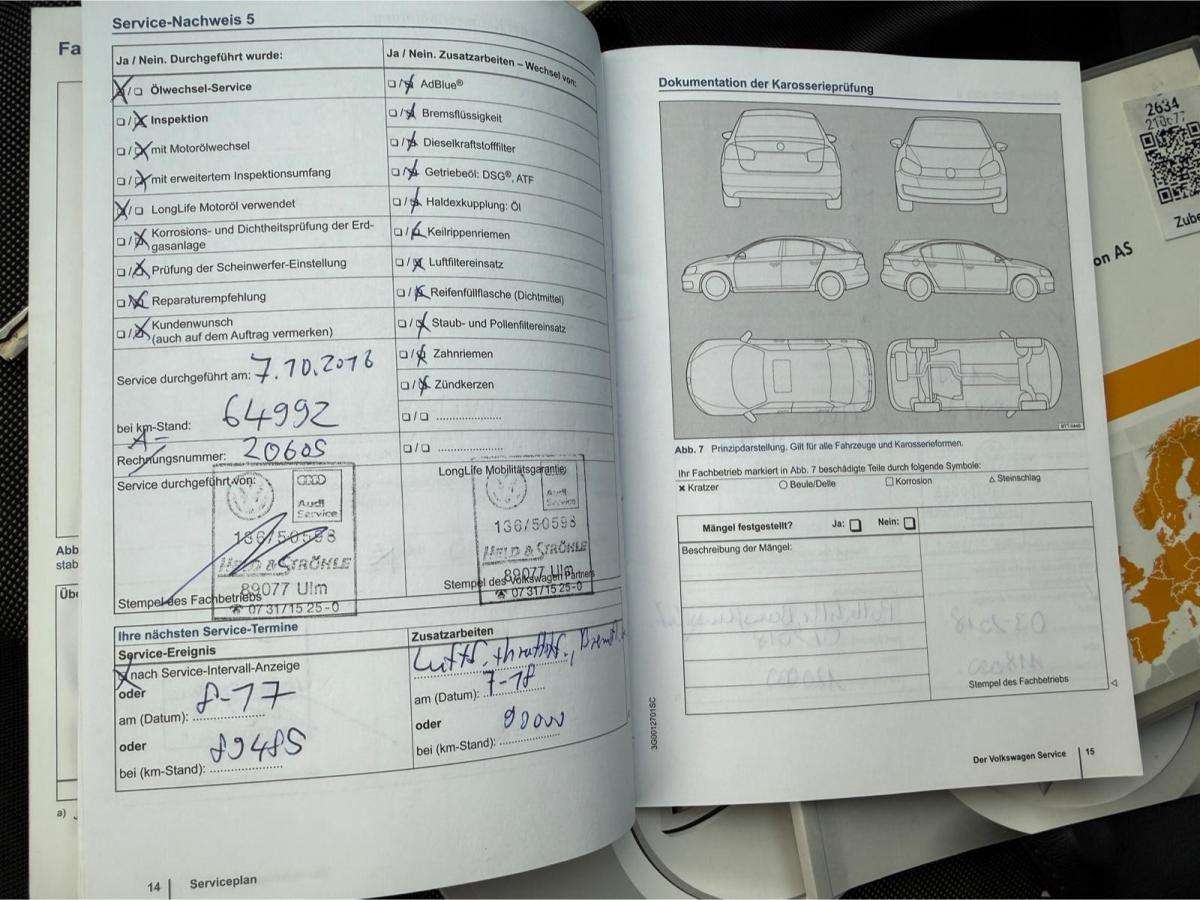 Fa
Service-Nachweis 5
Ja / Nein. Durchgeführt wurde:
Ja / Nein. Zusatzarbeiten – Wechsel von:
Ölwechsel-Service
Inspektion
mit Motorölwechsel
mit erweitertem Inspektionsumfang
LongLife Motoröl verwendet
Korrosions- und Dichtheitsprüfung der Erd-
gasanlage
Prüfung der Scheinwerfer-Einstellung
Reparaturempfehlung
Kundenwunsch
(auch auf dem Auftrag vermerken)
AdBlue®
Bremsflüssigkeit
Dieselkraftstofffilter
Getriebeöl: DSG®, ATF
Haldexkupplung: Öl
Keilrippenriemen
Luftfiltereinsatz
Reifenfüllflasche (Dichtmittel)
Staub- und Pollenfiltereinsatz
Zahnriemen
Zündkerzen
Service durchgeführt am: 7.10.2016
bei km-Stand: 64992
A-
Rechnungsnummer: 20605
Service durchgeführt von:
Audi
Service
136/50598
HELD & STRÖHLE
89077 Ulm
☎ 07 31/15 25-0
Stempel des Fachbetriebs
LongLife Mobilitätsgarantie
Audi
Service
136/50598
HELD & STRÖHLE
89077 Ulm
☎ 07 31/15 25-0
Stempel des Volkswagen Partners
Ihre nächsten Service-Termine
Service-Ereignis
nach Service-Intervall-Anzeige
oder
am (Datum): 8-17
oder
bei (km-Stand): 89485
Zusatzarbeiten
am (Datum): 7-18
oder
bei (km-Stand): 90000
14 | Serviceplan
Abb
stab
Übe
a)
Dokumentation der Karosserieprüfung
Abb. 7 Prinzipdarstellung. Gilt für alle Fahrzeuge und Karosserieformen.
Ihr Fachbetrieb markiert in Abb. 7 beschädigte Teile durch folgende Symbole:
× Kratzer ○ Beule/Delle □ Korrosion △ Steinschlag
Mängel festgestellt? Ja: □ Nein: □
Beschreibung der Mängel:
Stempel des Fachbetriebs
3G0012701SC
Der Volkswagen Service | 15
2634
Zube
on AS